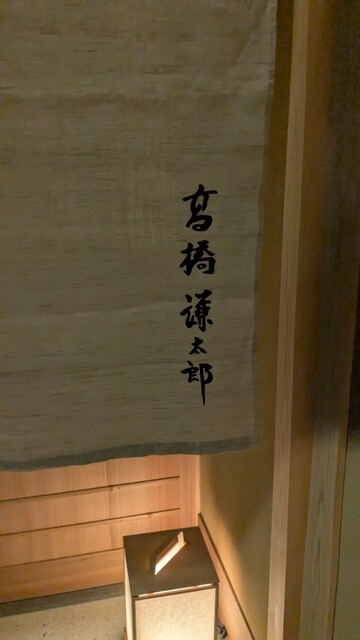 髙橋謙太郎